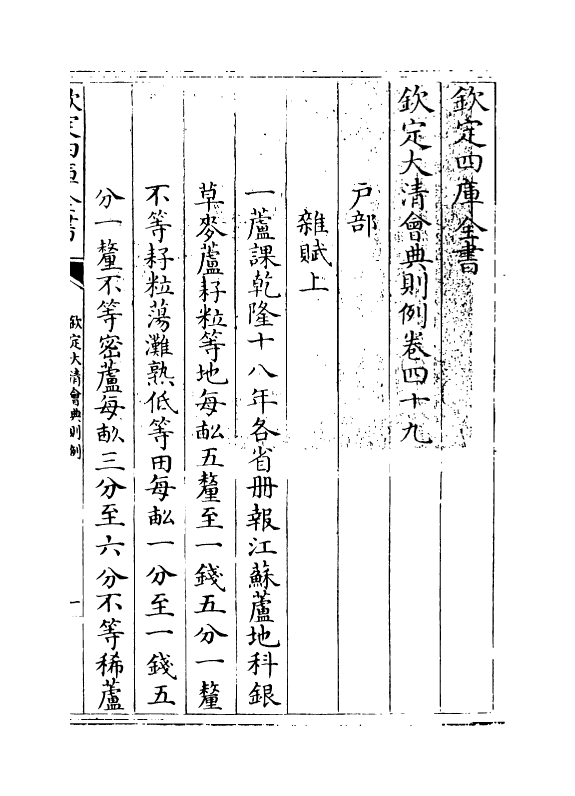 欽定四庫全書
欽定大清會典則例卷四十九
戶部
雜賦上
一蘆課乾隆十八年各省册報江蘇蘆地科銀
草麥蘆籽粒等地每畝五釐至一錢五分一釐
不等籽粒蕩灘熟低等田每畝一分至一錢五
分一釐不等密蘆每畝三分至六分不等稀蘆
欽定四庫全書
欽定大清會典則例
一